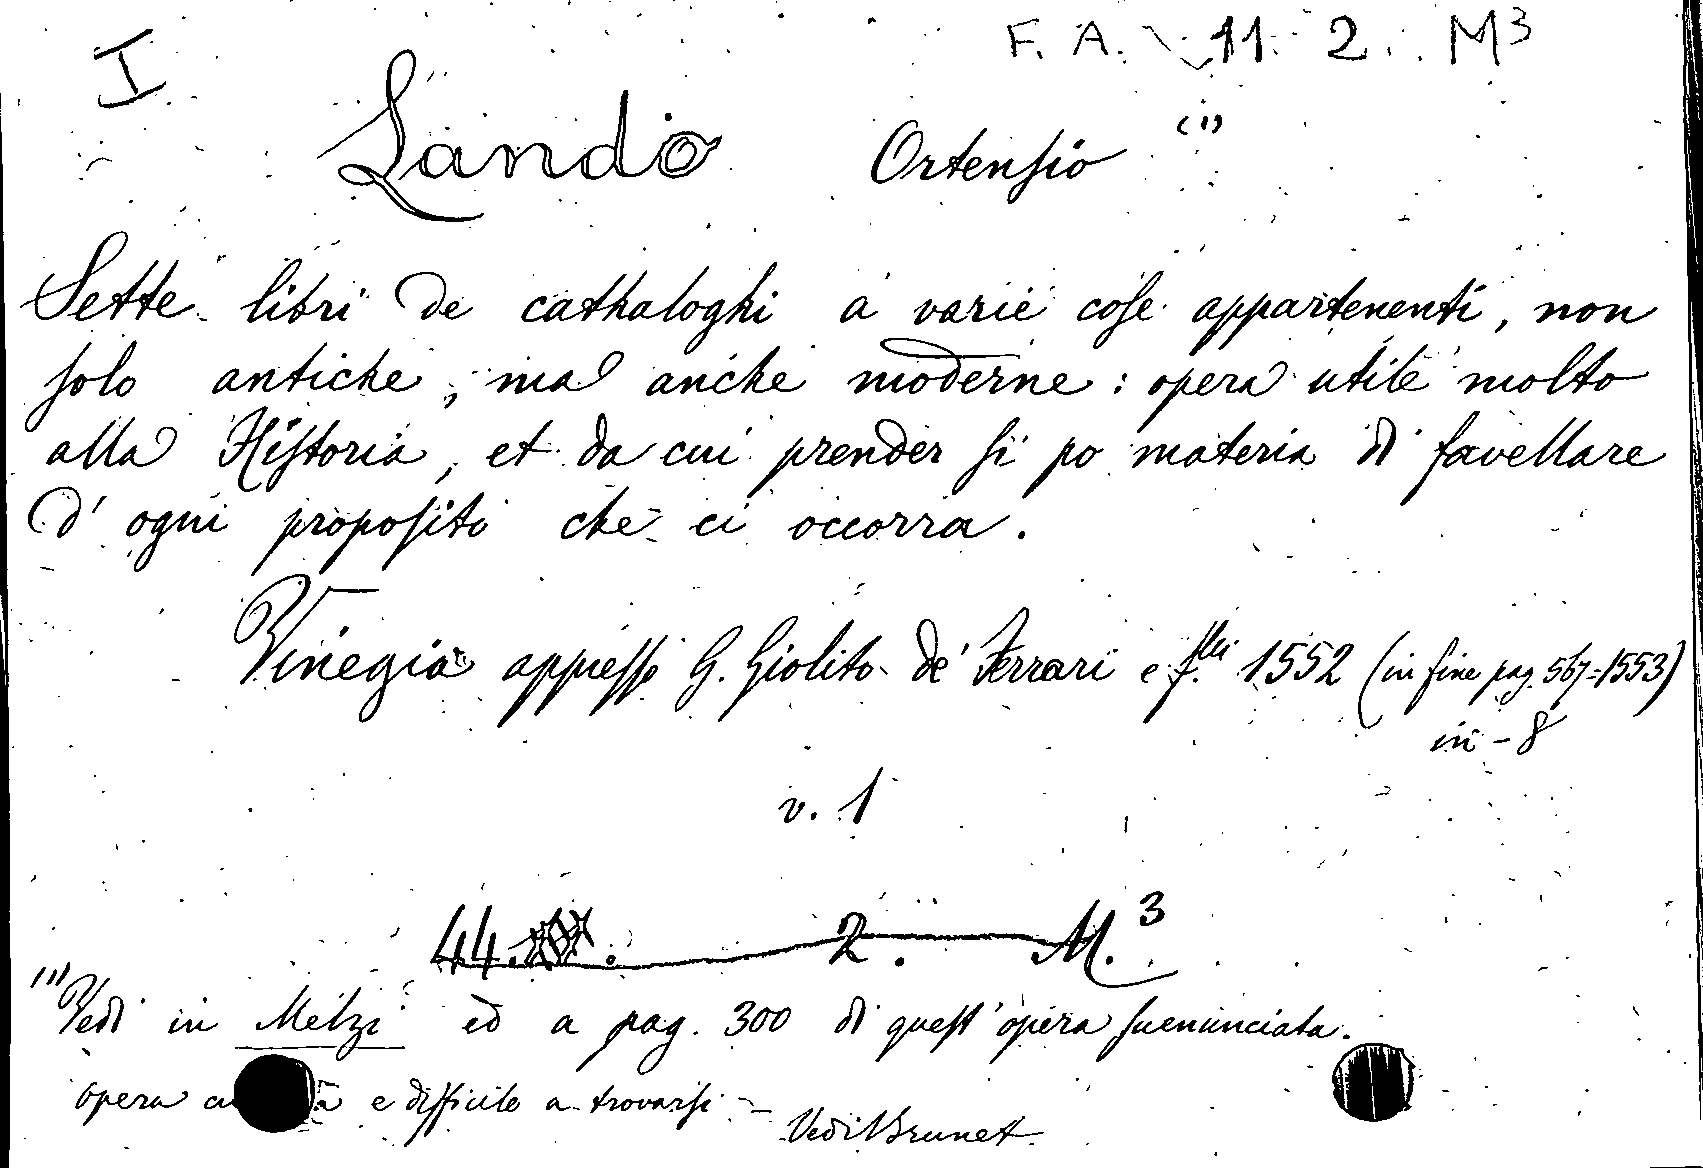 I
F. A. 11. 2. M³
Lando Ortensio (1)
Sette libri de cathaloghi a varie cose appartenenti, non
solo antiche, ma anche moderne: opera utile molto
alla Historia, et da cui prender si po materia di favellare
d'ogni proposito che ci occorra.
Vinegia appresso G. Giolito de' Ferrari e f.lli 1552 (in fine pag. 567=1553)
in-8
v. 1
44. 2. M.³
(1) Vedi in Melzi ed a pag. 300 di quest'opera suenunciata.
opera e difficile a trovarsi –
Vedi Brunet